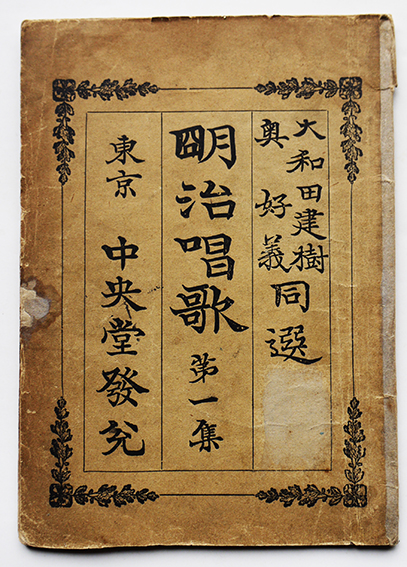 大和田建樹
奥好義同選
明治唱歌第一集
東京中央堂發兌